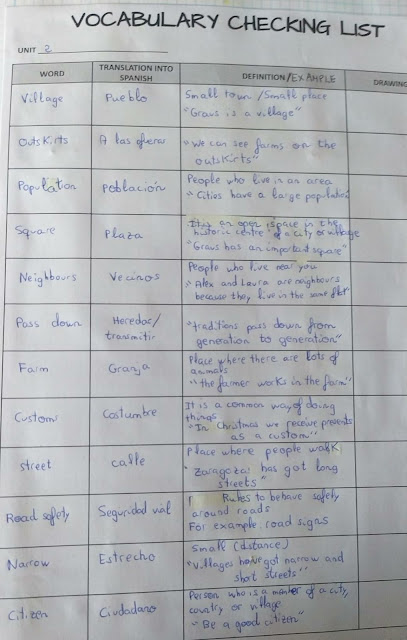 VOCABULARY CHECKING LIST
UNIT 2
WORD TRANSLATION INTO SPANISH DEFINITION/EXAMPLE DRAWING
Village Pueblo Small town / Small place
"Graus is a village"
Outskirts A las afueras "We can see farms on the
outskirts"
Population Población People who live in an area
"Cities have a large population
Square Plaza It is an open space in the
historic centre of a city or village
"Graus has an important square"
Neighbours Vecinos People who live near you
"Alex and Laura are neighbours
because they live in the same flat"
Pass down Heredar/
transmitir "traditions pass down from
generation to generation"
Farm Granja Place where there are lots of
animals
"the farmer works in the farm"
Customs Costumbre It is a common way of doing
things
"In Christmas we receive presents
as a custom"
street calle Place where people walk
"Zaragoza has got long
streets"
Road safety Seguridad vial Rules to behave safety
around roads
For example: road signs
Narrow Estrecho Small (distance)
"Villages have got narrow and
short streets"
Citizen Ciudadano Person who is a member of a city,
country or village
"Be a good citizen"